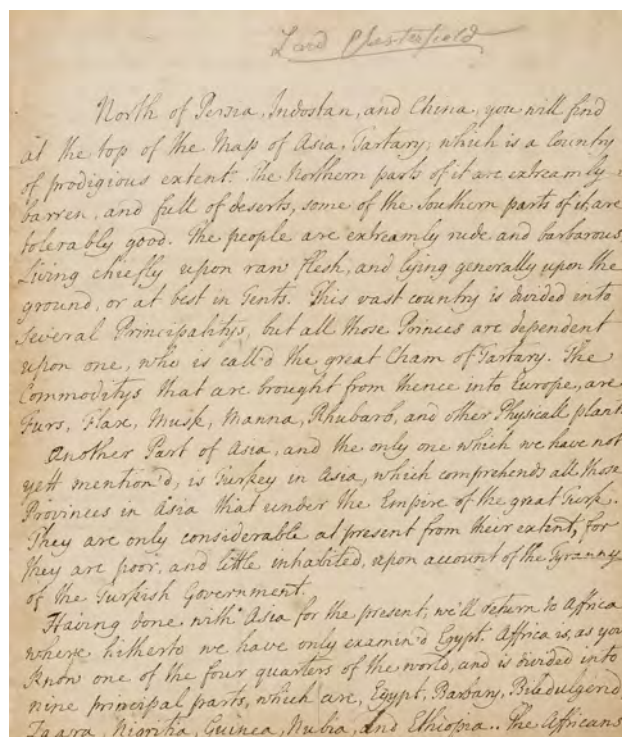 Lord Chesterfield
North of Persia, Indostan, and China, you will find
at the top of the Map of Asia, Tartary, which is a Country
of prodigious extent. The Northern parts of it are extreamly
barren, and full of deserts, some of the Southern parts of it, are
tolerably good. The people are extreamly rude and barbarous,
Living chiefly upon raw flesh, and lying generally upon the
ground, or at best in Tents. This vast country is divided into
several Principalitys, but all those Princes are dependent
upon one, who is call'd the great Cham of Tartary. The
Commoditys that are brought from thence into Europe, are
Furs, Flax, Musk, Manna, Rhubarb, and other Physicall plant
Another Part of Asia, and the only one which we have not
yett mention'd, is Turkey in Asia, which comprehends all those
Provinces in Asia that under the Empire of the great Turk.
They are only considerable at present from their extent, for
they are poor, and little inhabited, upon account of the Tyranny
of the Turkish Government.
Having done with Asia for the present, we'll return to Affrica
where hitherto we have only examin'd Egypt. Affrica is, as you
Know one of the four quarters of the world, and is divided into
nine principal parts, which are, Egypt, Barbary, Biledulgerid,
Zaara, Nigritia, Guinea, Nubia, and Ethiopia.. The Africans